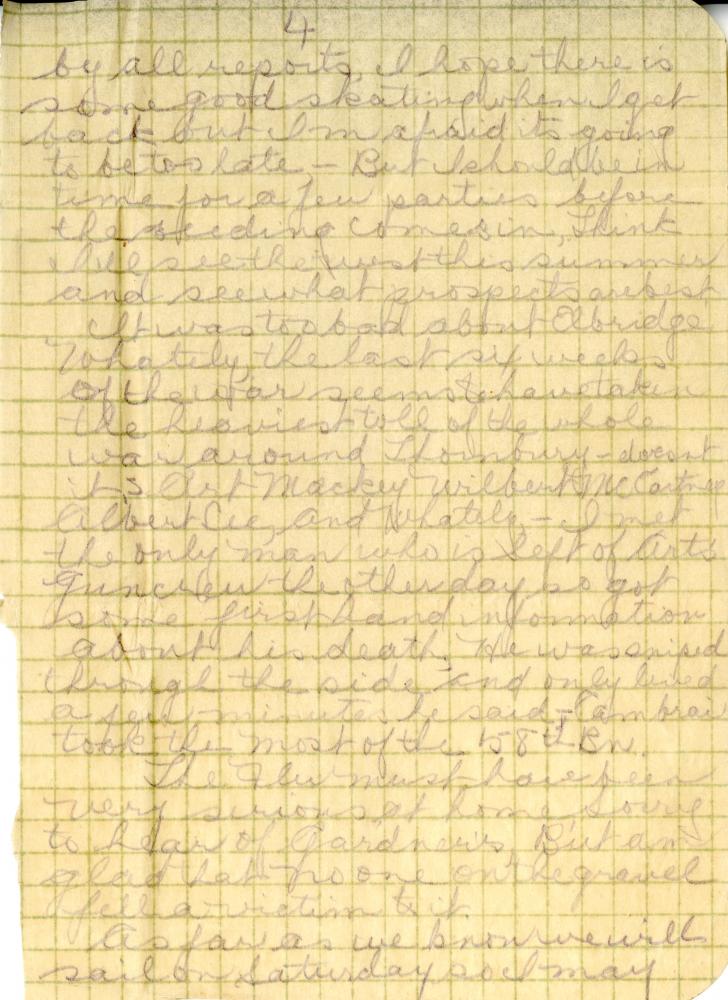 4
by all reports, I hope there is
some good skating when I get
back but I'm afraid its going
to be too late, - But I should be in
time for a few parties before
the seeding comes in, Think
I'll see the west this summer
and see what prospects are best
It was too bad about Elbridge
Whately, the last six weeks
of the war seems to have taken
the heaviest toll of the whole
war around Thornbury - doesnt
it, Art Mackey Wilbert McCartnee
Albert Cee, and Whately, - I met
the only man who is left of Arts
Guncrew the other day so got
some first hand information
about his death. He was sniped
through the side and only lived
a few minutes he said - Cambrai
took the most of the 58th Bn.
The Flu must have been
very serious at home Sorry
to hear of Gardners, But am
glad that no one on the gravel
fell a victim to it.
As far as we know we will
sail on Saturday so I may